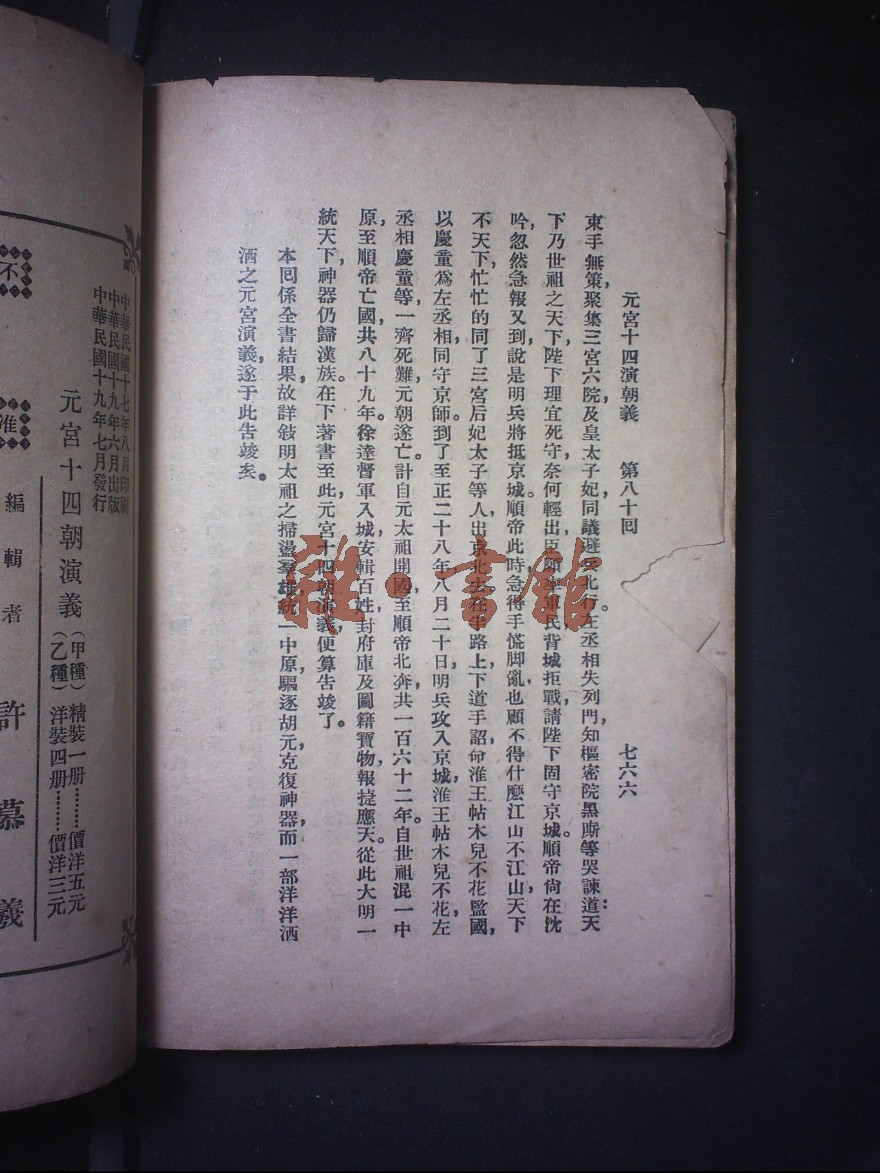 元宮十四演朝義 第八十回 七六六
束手無策聚集三宮六院及皇太子妃同議避兵北行。左丞相失列門知樞密院黑廝等哭諫道：天
下乃世祖之天下，陛下理宜死守，奈何輕出，臣願率軍民背城拒戰，請陛下固守京城。順帝尙在沈
吟，忽然急報又到，說是明兵將抵京城，順帝此時急得手慌脚亂，也顧不得什麽江山不江山，天下
不天下，忙忙的同了三宮后妃太子等人出京北去。在半路上下道手詔，命淮王帖木兒不花監國，
以慶童爲左丞相，同守京師。到了至正二十八年八月二十日，明兵攻入京城，淮王帖木兒不花，左
丞相慶童等一齊死難，元朝遂亡。計自元太祖開國，至順帝北奔，共一百六十二年。自世祖混一中
原，至順帝亡國，共八十九年。徐達督軍入城，安輯百姓，封府庫及圖籍寶物，報捷應天，從此大明一
統天下，神器仍歸漢族。在下著書至此，元宮十四朝演義，便算告竣了。
本回係全書結果，故詳敍明太祖之掃盪羣雄，統一中原，驅逐胡元，克復神器，而一部洋洋洒
洒之元宮演義，遂于此告竣矣。
中華民國十七年八月印刷
中華民國十九年六月出版
中華民國十九年七月發行
元宮十四朝演義
（甲種）精裝一册………價洋五元
（乙種）洋裝四册………價洋三元
不
准
編輯者 許慕羲
雜·書館